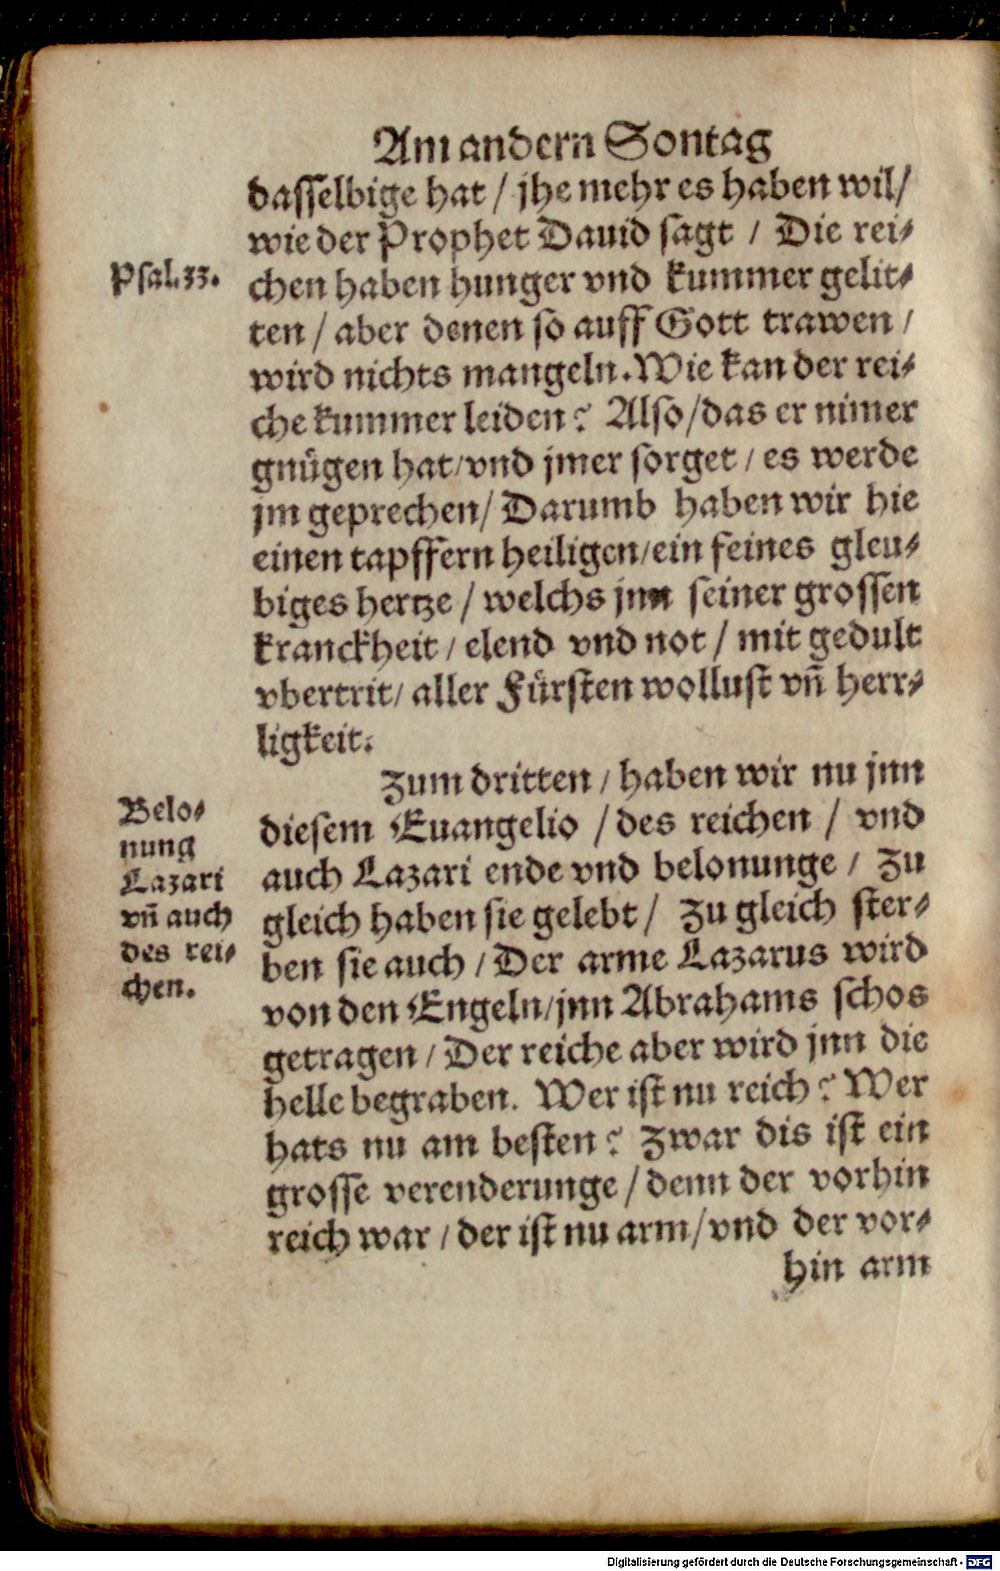 Am andern Sontag
dasselbige hat / jhe mehr es haben wil /
wie der Prophet Dauid sagt / Die rei⸗
Psal. 33.
chen haben hunger vnd kummer gelit⸗
ten / aber denen so auff Gott trawen /
wird nichts mangeln. Wie kan der rei⸗
che kummer leiden? Also / das er nimer
gnügen hat / vnd jmer sorget / es werde
jm geprechen / Darumb haben wir hie
einen tapffern heiligen / ein feines gleu⸗
biges hertze / welchs jnn seiner grossen
kranckheit / elend vnd not / mit gedult
vbertrit / aller Fürsten wollust vñ herr⸗
ligkeit.
Zum dritten / haben wir nu jnn
diesem Euangelio / des reichen / vnd
auch Lazari ende vnd belonunge / Zu
gleich haben sie gelebt / Zu gleich ster⸗
ben sie auch / Der arme Lazarus wird
von den Engeln / jnn Abrahams schos
getragen / Der reiche aber wird jnn die
helle begraben. Wer ist nu reich? Wer
hats nu am besten? Zwar dis ist ein
grosse verenderunge / denn der vorhin
reich war / der ist nu arm / vnd der vor⸗
hin arm
Belo⸗
nung
Lazari
vñ auch
des rei⸗
chen.
Digitalisierung gefördert durch die Deutsche Forschungsgemeinschaft - DFG